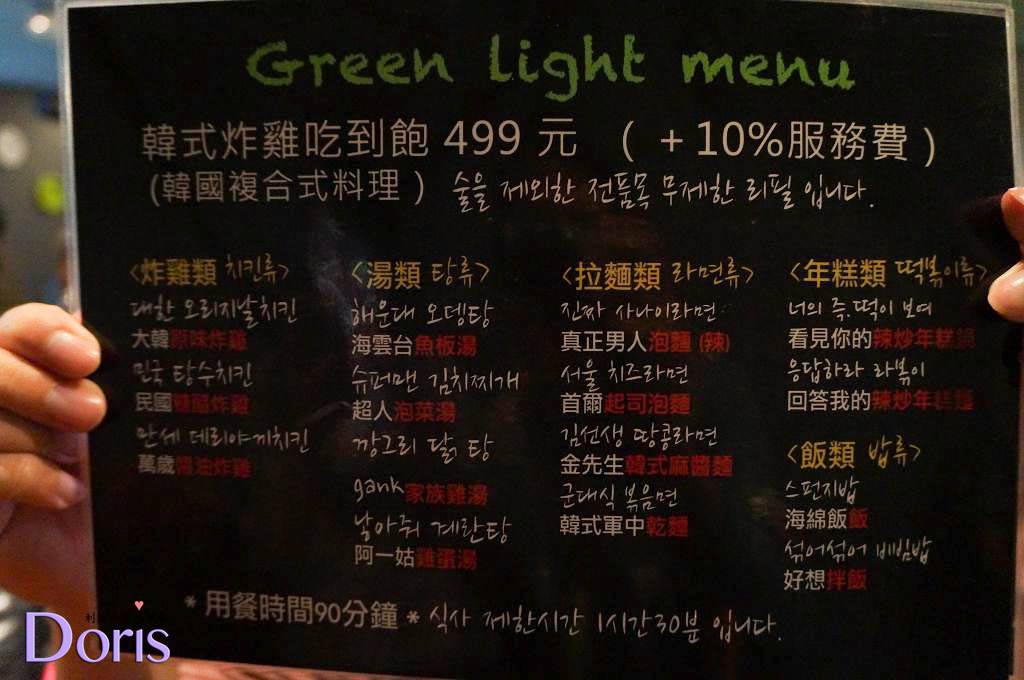 Green light menu
韓式炸雞吃到飽 499 元 ( +10%服務費 )
(韓國複合式料理) 술을 제외한 전품목 무제한 리필 입니다.
<炸雞類 치킨류>
대한 오리지날치킨
大韓原味炸雞
민국 탕수치킨
民國糖醋炸雞
만세 데리야끼치킨
萬歲醬油炸雞
<湯類 탕류>
해운대 오뎅탕
海雲台魚板湯
슈퍼맨 김치찌개
超人泡菜湯
깡그리 닭 탕
gank家族雞湯
낳아줘 계란탕
阿一姑雞蛋湯
<拉麵類 라면류>
진짜 사나이라면
真正男人泡麵 (辣)
서울 치즈라면
首爾起司泡麵
김선생 땅콩라면
金先生韓式麻醬麵
군대식 볶음면
韓式軍中乾麵
<年糕類 떡볶이류>
너의 즉.떡이 보여
看見你的辣炒年糕鍋
응답하라 라볶이
回答我的辣炒年糕麵
<飯類 밥류>
스펀지밥
海綿飯飯
섞어섞어 비빔밥
好想拌飯
* 用餐時間90分鐘 * 식사 제한시간 1시간30분 입니다.
Doris